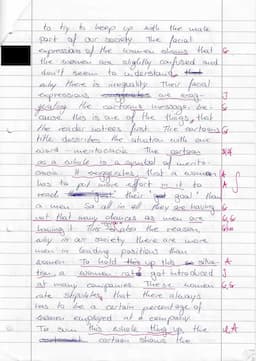 to try to keep up with the male
part of our society. The facial
expressions of the women shows that G
the women are slightly confused and
don't seem to understand,
why there is unequality. Their facial
expressions, are exag- J
gerating the cartoons message, be-
cause this is one of the things, that
the reader notices first. The cartoons G
title describes the situation with one
word - meritocracia. The cartoon
as a whole is a symbol of merito-
cracia. It exaggerates, that a woman A
has to put more effort in it to A
reach their goal than
a man. So all in all they are having G
not that many chances as men are G,G
having it. This is the reason,
why in our society there are more
men in leading positions than
women. To hold this situa- A
tion, a women got introduced J
at many companies. These women G,G
rate stipulates, that there always
has to be a certain percentage of
women employed at a company.
To sum this whole thing up, the A
cartoon shows the